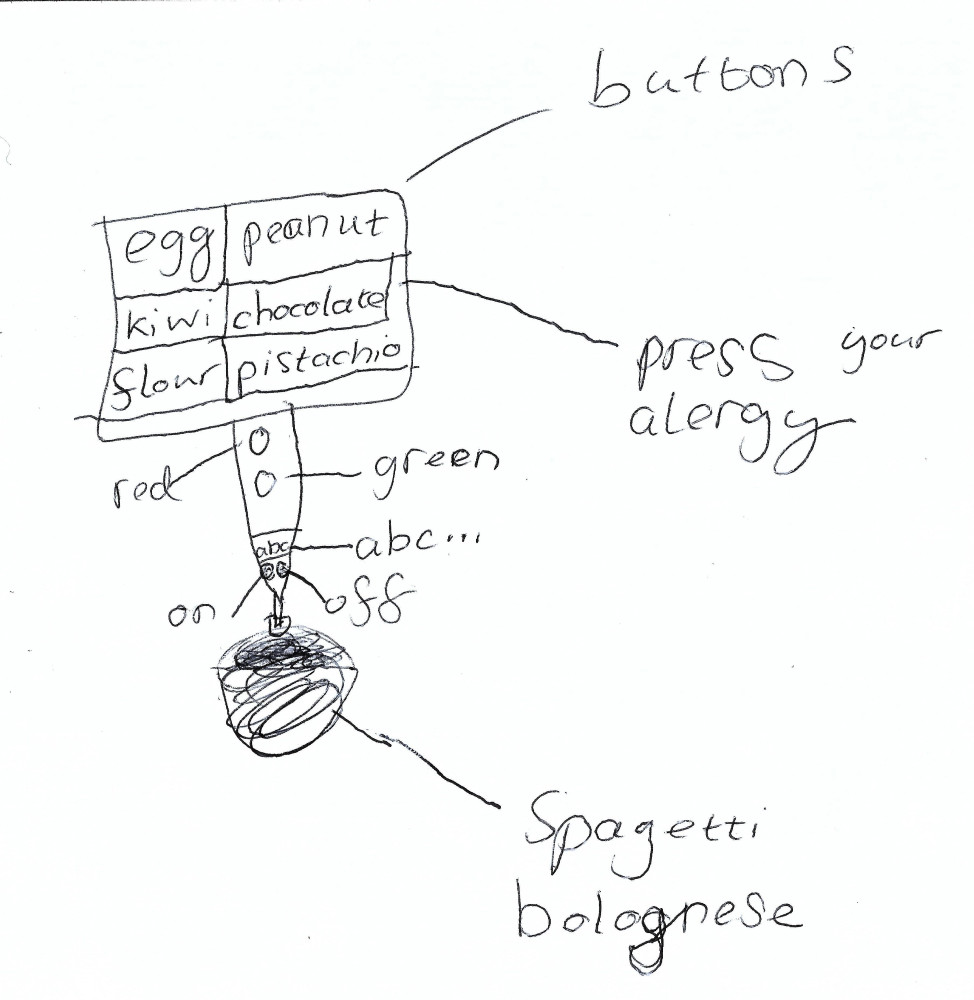 buttons
egg peanut
kiwi chocolate
flour pistachio
press your
alergy
red
green
abc
abc...
on
off
Spagetti
bolognese